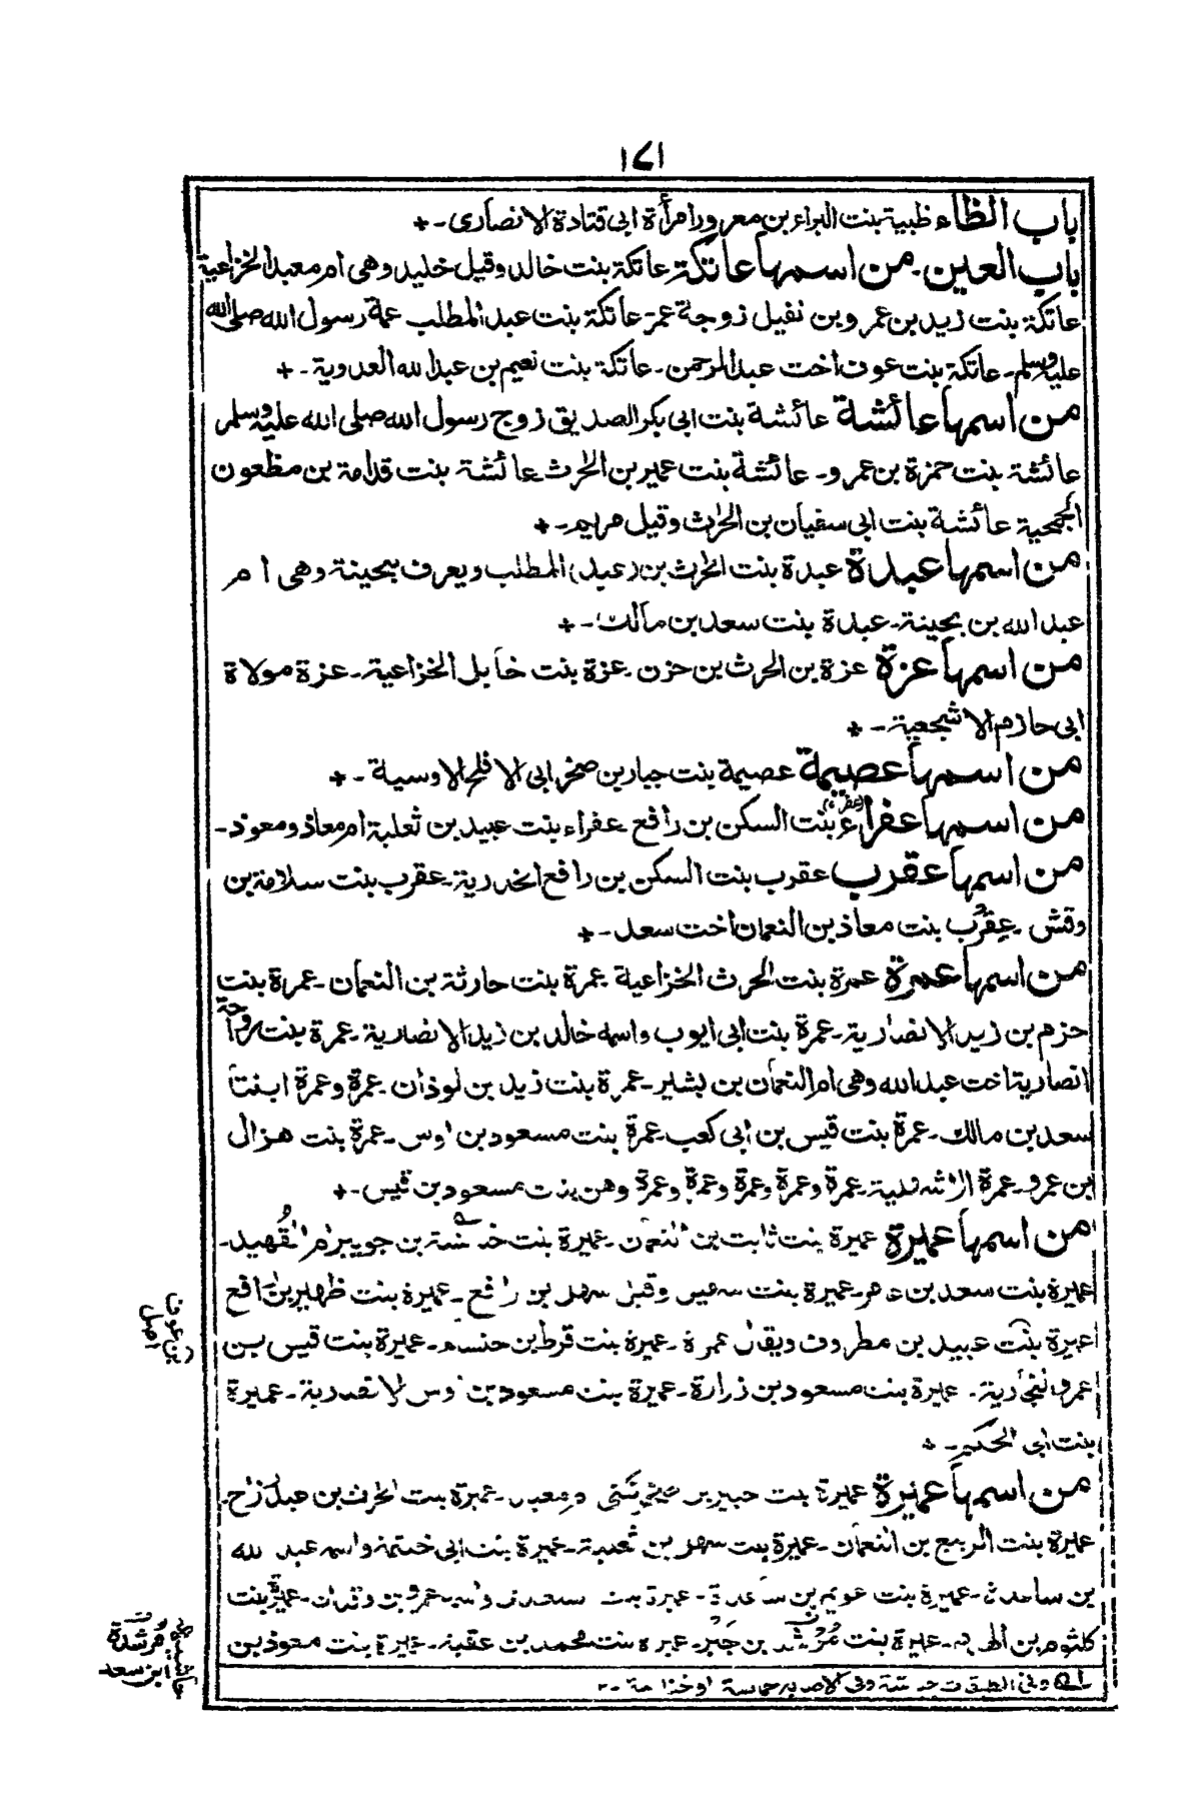 ١٧١
باب الظاء ظبية بنت البراء بن معرور امرأة ابى قتادة الانصارى -+
باب العين - من اسمها عاتكة عاتكة بنت خالد وقيل خليد وهى ام معبد الخزاعية
عاتكة بنت زيد بن عمرو بن نفيل زوجة عمر عاتكة بنت عبد المطلب عمة رسول الله صلى الله
عليه وسلم - عاتكة بنت عوف اخت عبد الرحمن - عاتكة بنت نعيم بن عبد الله العدوية -+
من اسمها عائشة عائشة بنت ابى بكر الصديق زوج رسول الله صلى الله عليه وسلم
عائشة بنت حمزة بن عمرو - عائشة بنت عمير بن الحرث عائشة بنت قدامة بن مظعون
الجمحية عائشة بنت ابى سفيان بن الحرث وقيل مريم -+
من اسمها عبدة عبدة بنت الحرث بن (عبد) المطلب ويعرف ببحينة وهى ام
عبد الله بن بحينة - عبدة بنت سعد بن مالك -+
من اسمها عزة عزة بن الحرث بن حزن - عزة بنت خابل الخزاعية - عزة مولاة
ابى حازم الاشجعية -+
من اسمها عصيمة عصيمة بنت جبار بن صخر ابى الاقلح الاوسية -+
من اسمها عفراء (عفراء) بنت السكن بن رافع عفراء بنت عبيد بن ثعلبة ام معاذ ومعوذ -
من اسمها عقرب عقرب بنت السكن بن رافع الخدرية - عقرب بنت سلامة بن
وقش - عقرب بنت معاذ بن النعمان اخت سعد -+
من اسمها عمرة عمرة بنت الحرث الخزاعية عمرة بنت حارثة بن النعمان - عمرة بنت
حزم بن زيد الانصارية - عمرة بنت ابى ايوب واسمه خالد بن زيد الانصارية - عمرة بنت رواحة
انصارية اخت عبد الله وهى ام النعمان بن بشير - عمرة بنت زيد بن لوذان - عمرة وعمرة ابنتا
سعد بن مالك - عمرة بنت قيس بن ابى كعب عمرة بنت مسعود بن اوس - عمرة بنت هزال
بن عمرو - عمرة الاشهلية - عمرة وعمرة وعمرة وعمرة وعمرة وهن بنت مسعود بن قيس -+
من اسمها عميرة عميرة بنت ثابت بن النعمان - عميرة بنت بن جويبر ام القهيد -
عميرة بنت سعد بن عامر - عميرة بنت سهيل وقيل سهل بن رافع - عميرة بنت ظهير بن رافع
عميرة بنت عبيد بن مطروف ويقال عمرة - عميرة بنت قرط بن خنساء - عميرة بنت قيس بن
عمرو النجارية - عميرة بنت مسعود بن زرارة - عميرة بنت مسعود بن اوس الانصارية - عميرة
بنت ابى الحكم -+
من اسمها عميرة عميرة بنت جبير بن - عميرة بنت الحرث بن عبد رزاح -
عميرة بنت الربيع بن النعمان - عميرة بنت سهل بن ثعلبة - عميرة بنت ابى حثمة واسمه عبد الله
بن ساعدة - عميرة بنت عويم بن ساعدة - عميرة بنت سعد - عميرة بنت
كلثوم بن الهدم - عميرة بنت مرشد بن جبر - عميرة بنت محمد بن عقبة - عميرة بنت معوذ بن
بن عوف
اصل
مرشدة
ابن سعد
وفى الطبقات